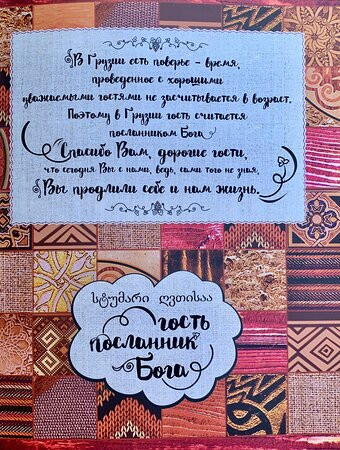 В Грузии есть поверье - время,
проведенное с хорошими
уважаемыми гостями не засчитывается в возраст.
Поэтому в Грузии гость считается
посланником Бога
Спасибо Вам, дорогие гости,
что сегодня Вы с нами, ведь, сами того не зная,
Вы продлили себе и нам жизнь.
სტუმარი ღვთისაა
гость
посланник
Бога